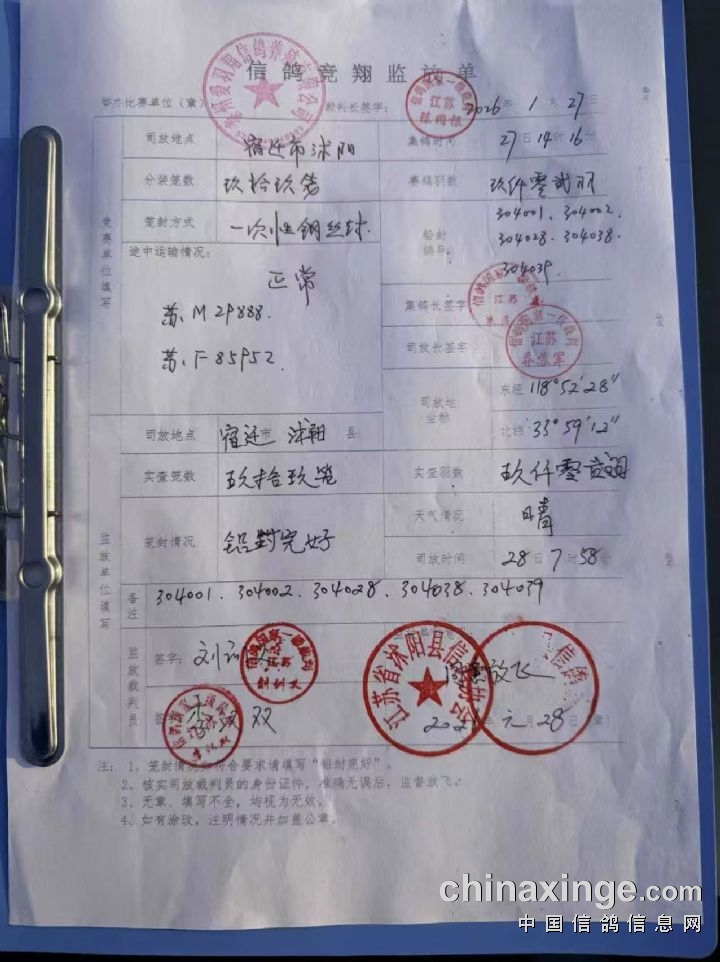 信鸽竞翔监放单
举办比赛单位（章）
裁判长签字：
2026年1月27日
竞赛单位填写
司放地点 宿迁市沭阳
集鸽时间 27日14时16分
分装笼数 玖拾玖笼
赛鸽羽数 玖仟零贰羽
笼封方式 一次性钢丝封
铅封编号： 304001、304002、
304028、304038、
304039
途中运输情况：
正常
苏、M 29888
苏、F 85952
集鸽长签字
司放长签字
江苏
乔崇军
司放地坐标
东经 118°52′28″
北纬 33°59′12″
监放单位填写
司放地点 宿迁市 沭阳 县
实查笼数 玖拾玖笼
实查羽数 玖仟零贰羽
天气情况 晴
笼封情况 铅封完好
司放时间 28日7时58分
备注 304001、304002、304028、304038、304039
监放裁判员
签字：刘
双
江苏省沭阳县信鸽协会
放飞
元月28日（章）
注：1、笼封情况如符合要求请填写“铅封完好”。
2、核实司放裁判员的身份证件，准确无误后，监督放飞。
3、无章、填写不全，均视为无效。
4、如有涂改，注明情况并加盖公章。
chinaxinge.com
中国信鸽信息网